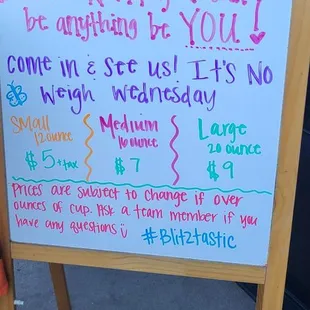 be anything be YOU!
come in & see us! It's NO
weigh wednesday
Small
12 ounce
$5 + tax
Medium
16 ounce
$7
Large
20 ounce
$9
Prices are subject to change if over
ounces of cup. Ask a team member if you
have any questions
#Blitztastic